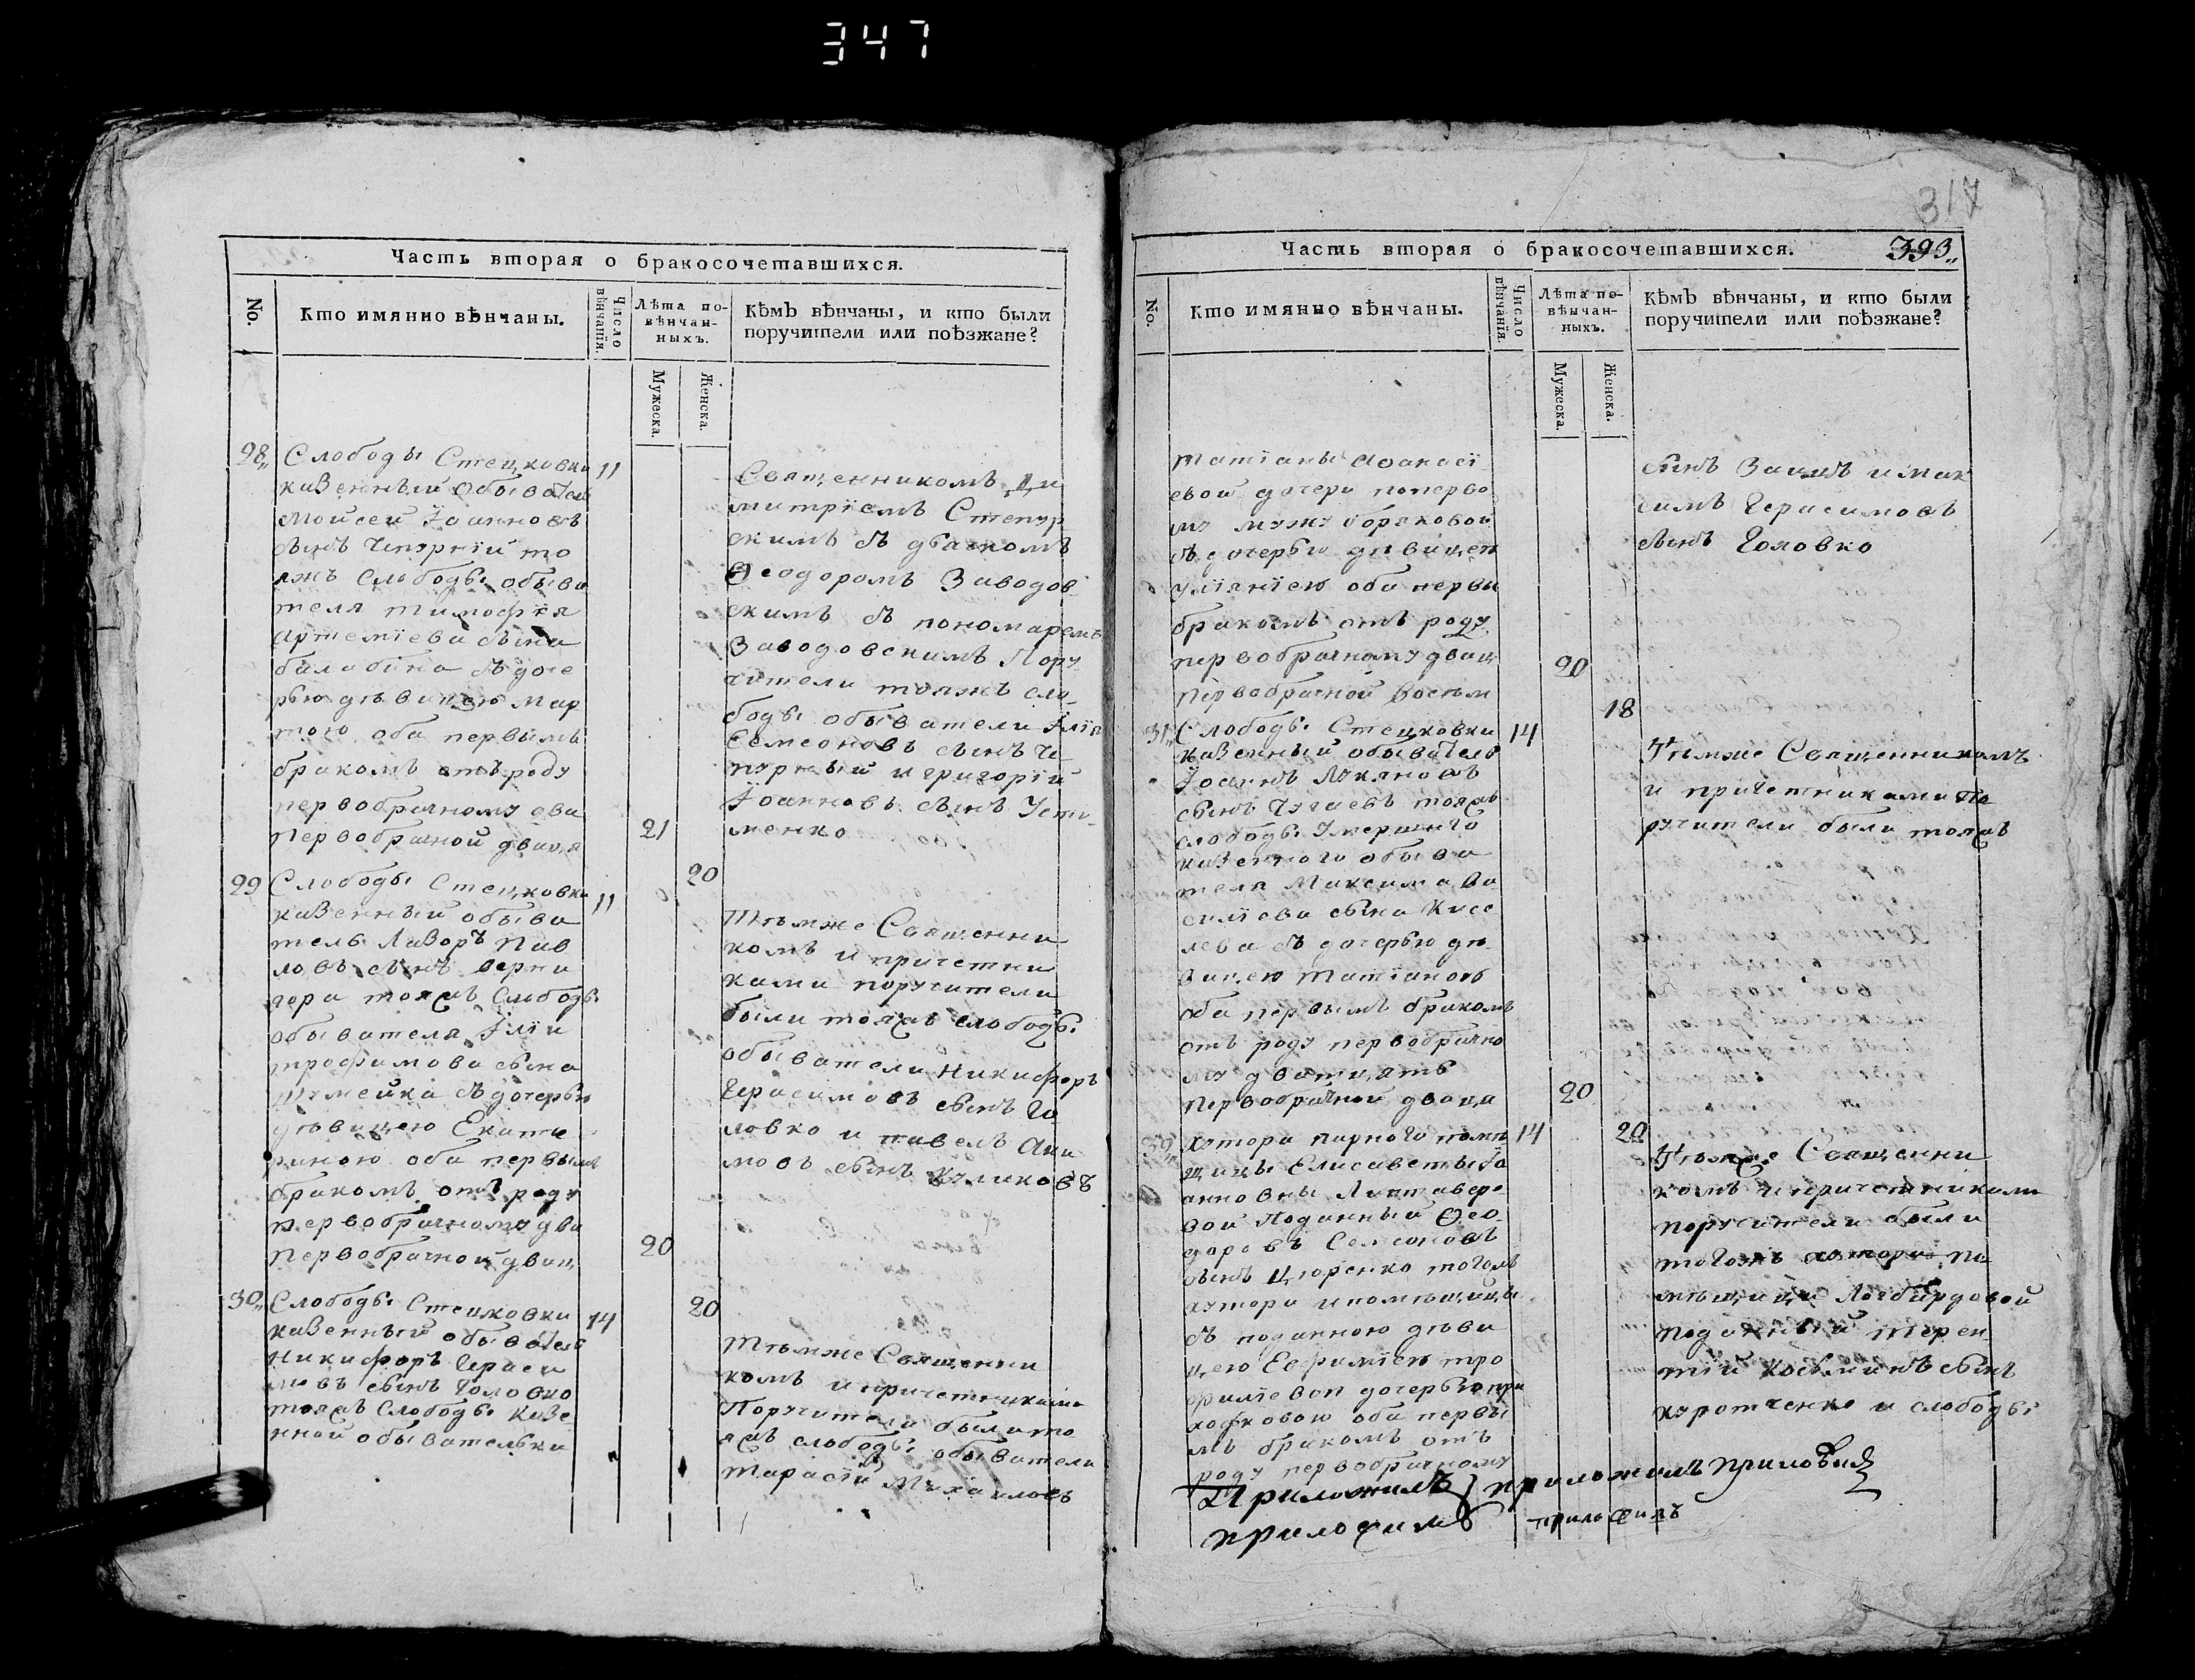 347
317
Часть вторая о бракосочетавшихся.
No.
Кто имянно вѣнчаны.
Число вѣнчанія.
Лѣта повѣнчанныхъ.
Мужеска.
Женска.
Кѣмъ вѣнчаны, и кто были
поручители или поѣзжане?
28„ Слободы Стецковки 11
казенный обыватель
Моисей Іоанновъ
сынъ Чепурній то
яжъ слободы обыва
теля Тимофея
Артеміева сына
балабина съ доче
рью дѣвицею Мар
тою оба первымъ
бракомъ отъ роду
первобрачному два
21
первобрачной дваця
20
Священникомъ Ди
митріемъ Степур
скимъ съ дьячкомъ
Ѳеодоромъ Заводов
скимъ съ пономаремъ
Заводовскимъ Пору
чители тояжъ сло
боды обыватели Илія
Семеоновъ сынъ Че
пурный и григорій
Іоанновъ сынъ Усти
менко
29 Слободы Стецковки 11
казенный обыва
тель Лазоръ Пав
ловъ сынъ Верни
гора тояжъ Слободы
обывателя Іліи
трофимова сына
съ дочерью
дѣвицею Екате
риною оба первымъ
бракомъ отъ роду
первобрачному два
20
первобрачной двац
20
Тѣмже Священни
комъ и причетни
ками поручители
были тояжъ слободы
обыватели Никифоръ
Герасимовъ сынъ Го
ловко и павелъ Аки
мовъ сынъ Куликовъ
30„ Слободы Стецковки 14
казенный обыватель
Никифоръ Гераси
мовъ сынъ Головко
тояжъ Слободы казе
нной обывательки
Тѣмже Священни
комъ и причетниками
Поручители были то
яжъ слободы обыватели
Тарасій Михаиловъ
Часть вторая о бракосочетавшихся. 393„
No.
Кто имянно вѣнчаны.
Число вѣнчанія.
Лѣта повѣнчанныхъ.
Мужеска.
Женска.
Кѣмъ вѣнчаны, и кто были
поручители или поѣзжане?
Татіаны Аѳанасі
евой дочери поперво
му мужу боряковой
съ дочерью дѣвицею
уліяніею оба первы
бракомъ отъ роду
первобрачному двац
20
первобрачной восѣм
18
сынъ и Мак
симъ Герасимовъ
сынъ Головко
31„ Слободы Стецковки 14
казенный обыватель
Іоаннъ Лукяновъ
сынъ Чугаевъ тояжъ
слободы Умершаго
казенного обыва
теля Максима Ва
силіева сына Кисе
лева съ дочерью дѣ
вицею Татіаною
оба первымъ бракомъ
отъ роду первобрачно
му дватцять
20
первобрачной дваца
20
Тѣмже Священникомъ
и причетниками По
ручители были тояжъ
32„ хутора парного помѣ 14
щицы Елисаветы Іо
анновны
вой Поданный Ѳео
доровъ Семеоновъ
сынъ Цюренко тогожъ
хутора и помѣщицы
съ поданною дѣви
цею Евфиміею тро
фимевой дочерью при
ходковою оба первы
мъ бракомъ отъ
роду первобрачному
Тѣмже Священни
комъ и причетниками
поручители были
тогожъ хутора по
мѣщици
поданный терен
тій Косминъ сынъ
куротченко и слободы
Приложилъ приложилъ
приложилъ приложилъ